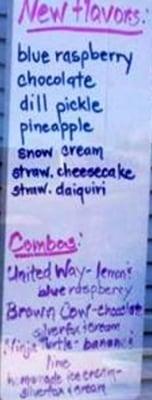 New flavors:
blue raspberry
chocolate
dill pickle
pineapple
snow cream
straw. cheesecake
straw. daiquiri
Combos:
United Way - lemon &
blue raspberry
Brown Cow - chocolate
silverfox cream
Ninja Turtle - banana &
lime
homemade ice cream -
silverfox cream